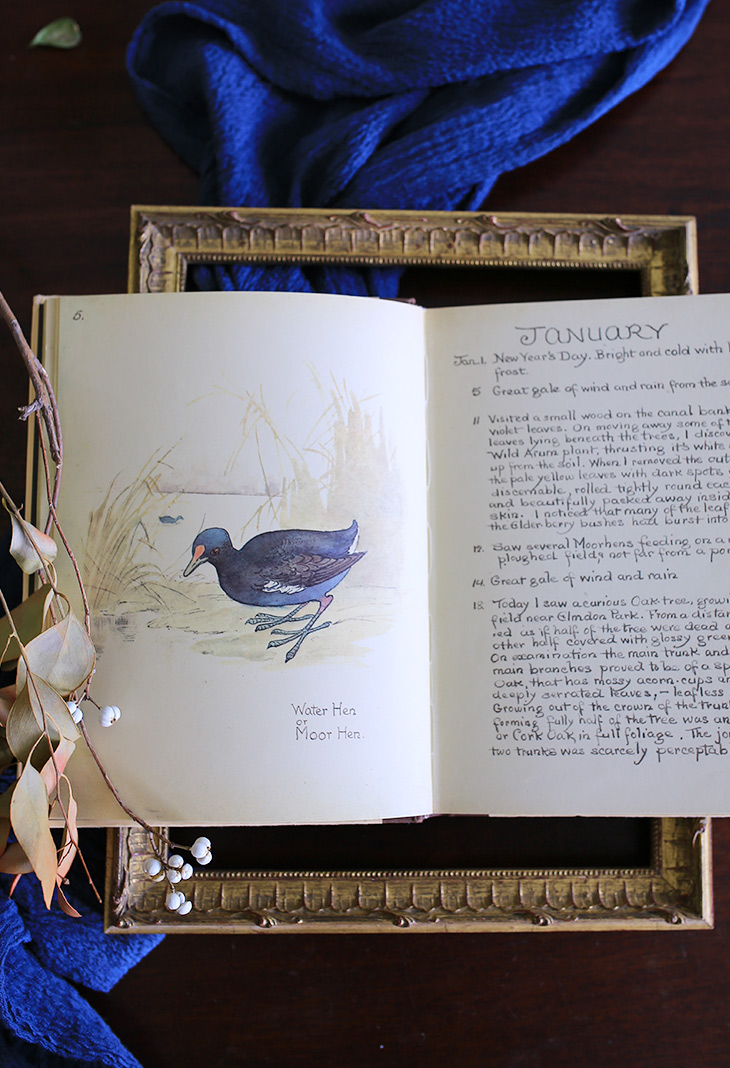 5.
Water Hen
or
Moor Hen.
JANUARY
Jan.1. New Year's Day. Bright and cold with
frost.
5 Great gale of wind and rain from the
11 Visited a small wood on the canal bank
violet leaves. On moving away some of
leaves lying beneath the trees, I
Wild Arum plant, thrusting it's white
up from the soil. When I removed the
the pale yellow leaves with dark spots
discernable, rolled tightly round
and beautifully packed away
skin. I noticed that many of the
the Elderberry bushes had burst into
12. Saw several Moorhens feeding on a
ploughed field, not far from a
14. Great gale of wind and rain
18 Today I saw a curious Oak-tree,
field near Elmdon Park. From a
ied as if half of the tree were dead
other half covered with glossy
On examination the main trunk and
main branches proved to be of a
Oak, that has mossy acorn-cups
deeply serrated leaves,- leafless
Growing out of the crown of the
forming fully half of the tree was
or Cork Oak in full foliage. The
two trunks was scarcely